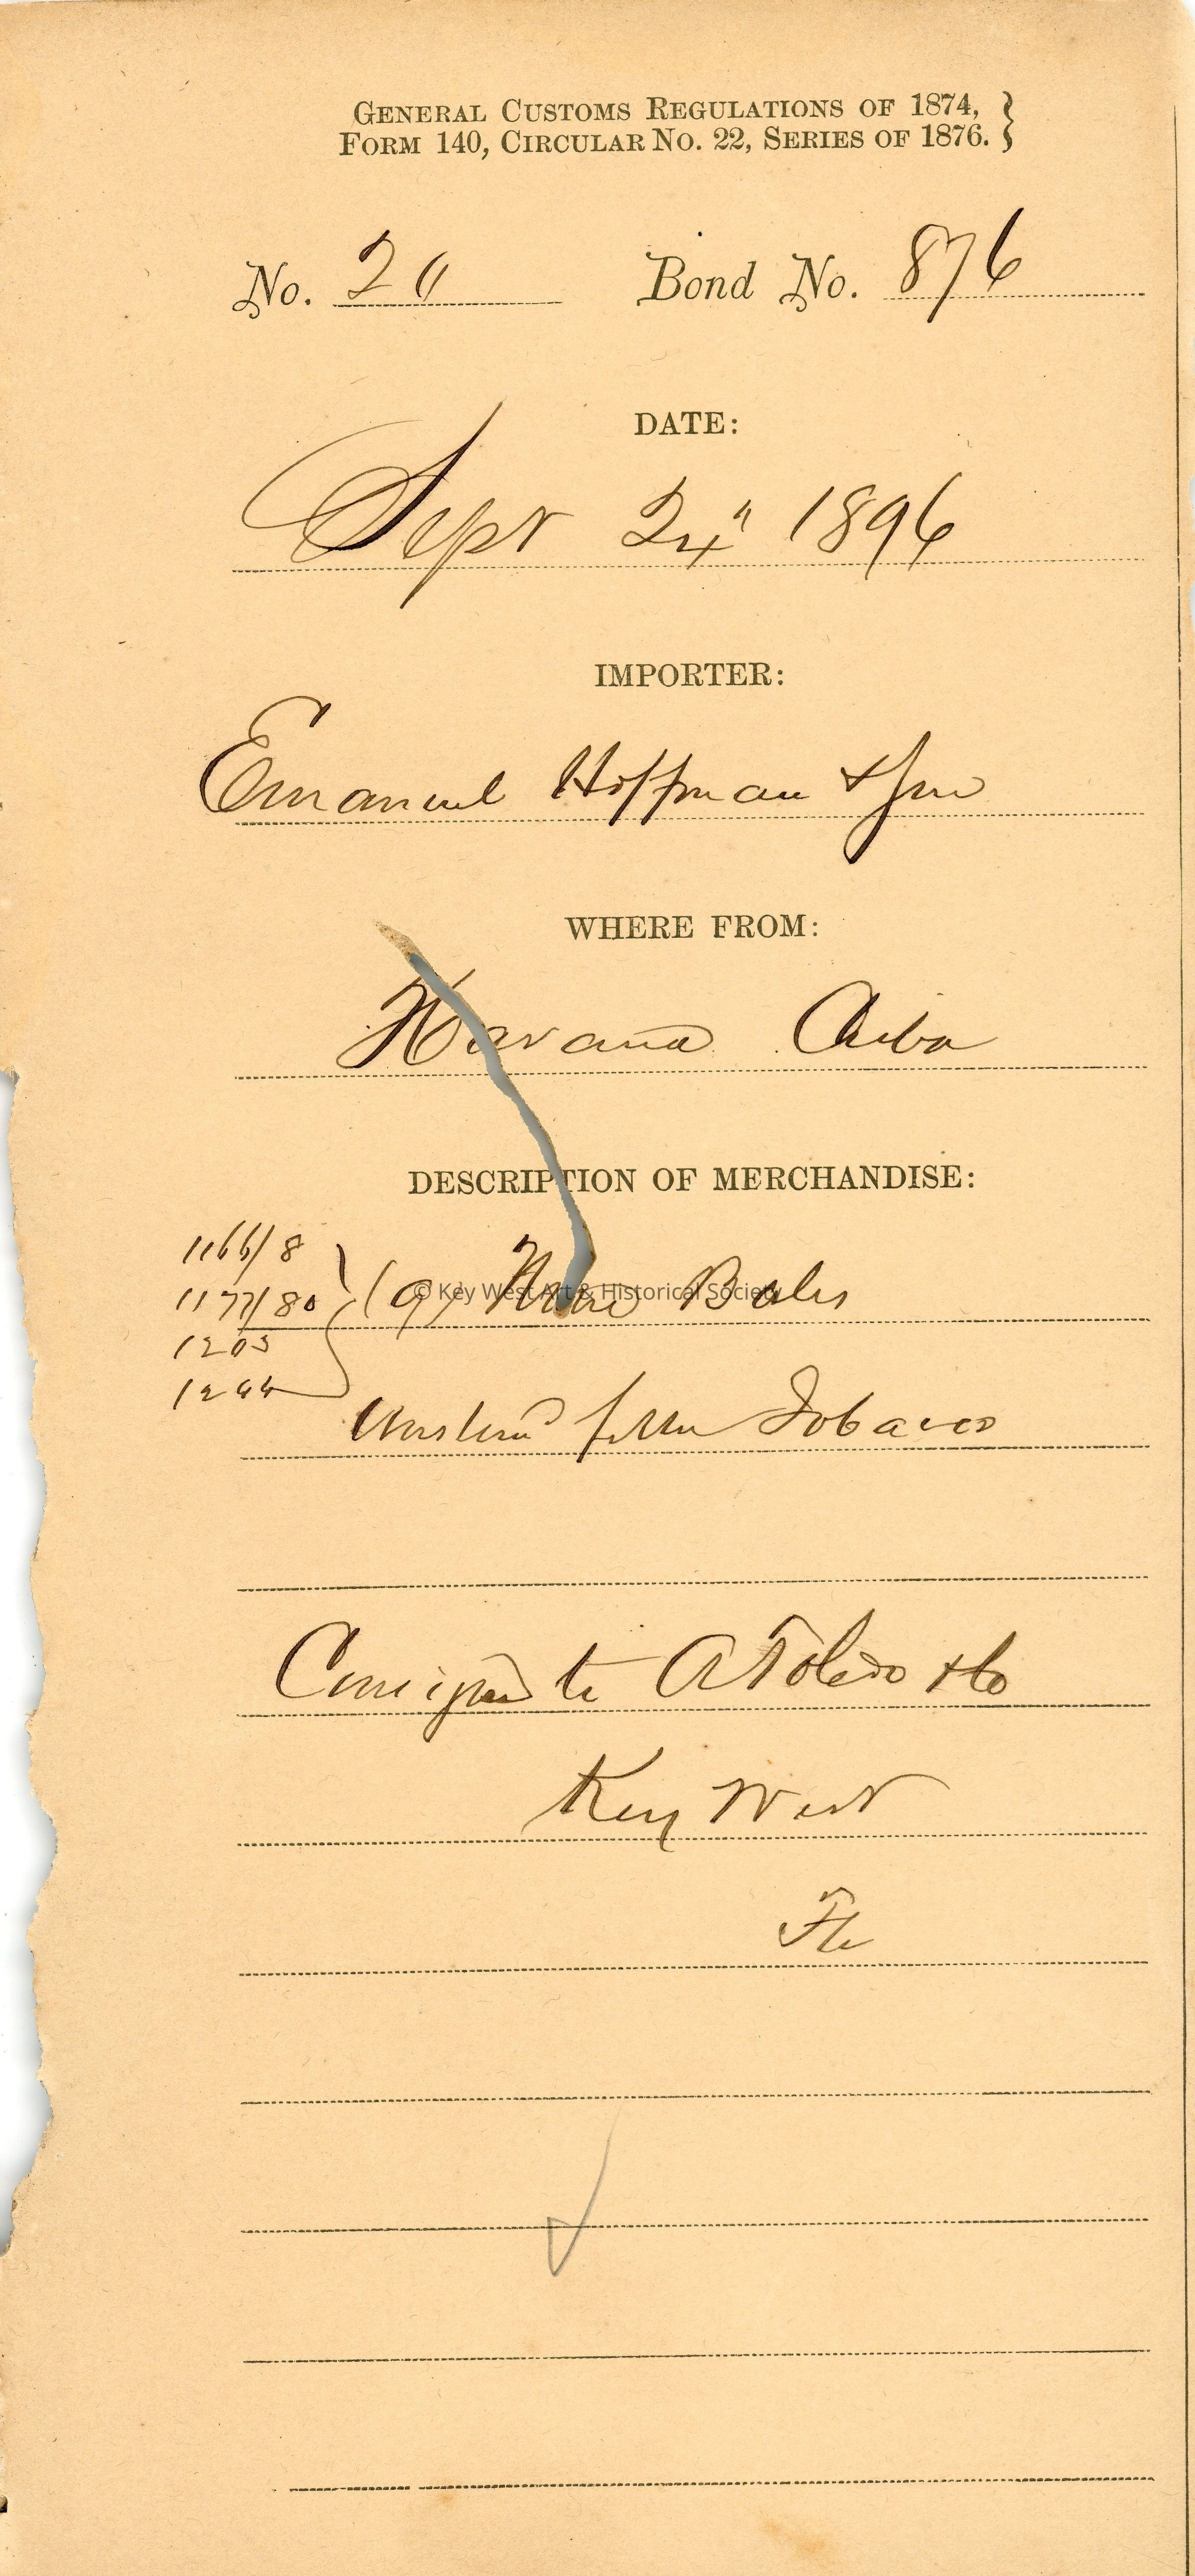 GENERAL CUSTOMS REGULATIONS OF 1874, }
FORM 140, CIRCULAR NO. 22, SERIES OF 1876. }
No. 20 Bond No. 876
DATE:
Sept 24" 1896
IMPORTER:
Emanuel Hoffman & Son
WHERE FROM:
Havana Cuba
DESCRIPTION OF MERCHANDISE:
1166/8
1177/80 (9) Nine Bales
© Key West Art & Historical Society
1205
1244
Unstem'd filler Tobacco
Consigned to A Toledo & Co
Key West
Fla